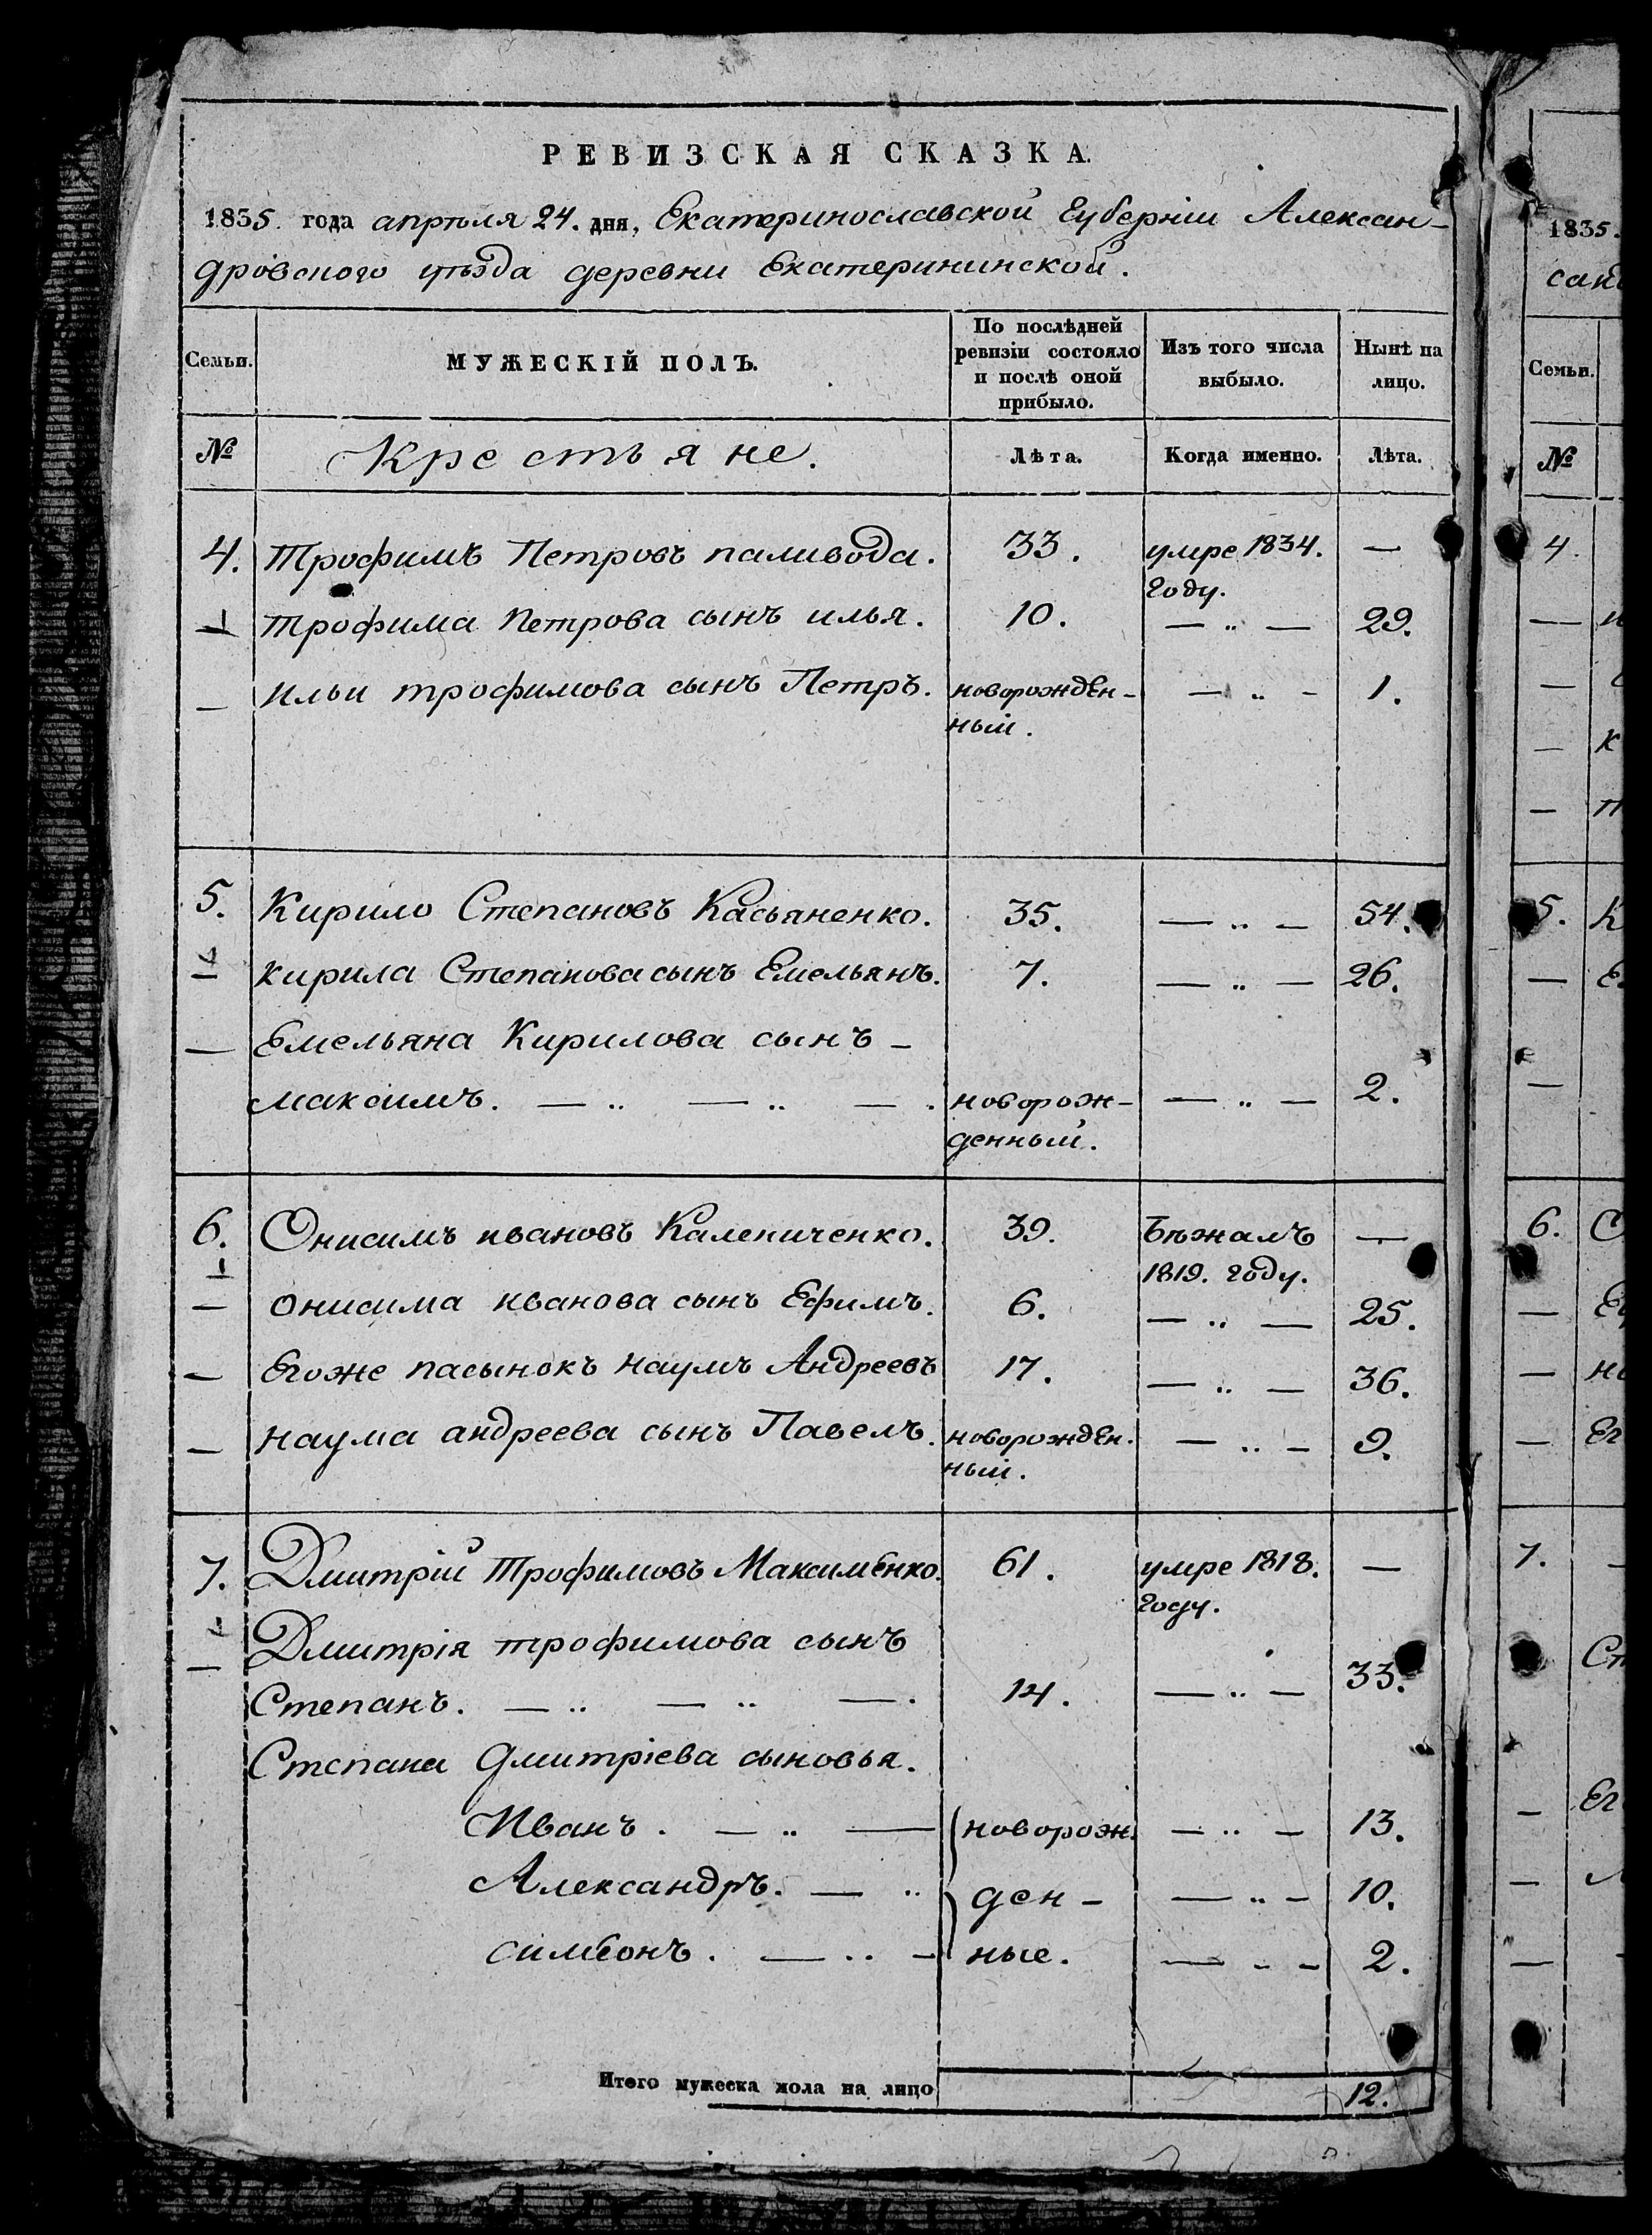 РЕВИЗСКАЯ СКАЗКА.
1835. года апрѣля 24. дня, Екатеринославской Губерніи Алексан-
дровского уѣзда деревни Екатерининской.
Семьи. МУЖЕСКІЙ ПОЛЪ. По послѣдней ревизіи состояло и послѣ оной прибыло. Изъ того числа выбыло. Нынѣ на лицо.
№ Крестьяне. Лѣта. Когда именно. Лѣта.
4. Трофимъ Петровъ паливода. 33. умре 1834. —
году.
1 Трофима Петрова сынъ илья. 10. — „ — 29.
— Ильи трофимова сынъ Петръ. новорожден- — „ — 1.
ный.
5. Кирило Степановъ Касьяненко. 35. — „ — 54.
1 — кирила Степанова сынъ Емельянъ. 7. — „ — 26.
— Емельяна Кирилова сынъ —
максимъ. — „ — „ — . новорож- — „ — 2.
денный.
6. Онисимъ ивановъ Калениченко. 39. Бѣжалъ —
1 1819. году.
— онисима иванова сынъ Ефимъ. 6. — „ — 25.
— Егоже пасынокъ наумъ Андреевъ 17. — „ — 36.
— наума андреева сынъ Павелъ. новорожден- — „ — 9.
ный.
7. Дмитрій Трофимовъ Максименко. 61. умре 1818. —
году.
1 — Дмитрія трофимова сынъ
Степанъ. — „ — „ — . 14. — „ — 33.
Степана Дмитріева сыновья.
Иванъ. — „ — новорож. — „ — 13.
Александръ. — „ ден- — „ — 10.
симеонъ. — „ — ные. — „ — 2.
Итого мужеска пола на лицо 12.
1835.
сан
Семьи.
№
4.
—
—
— К
— П
5. К
— Е
—
6. С
— Е
— на
— Ег
7. —
Ст
— Ег
—
—